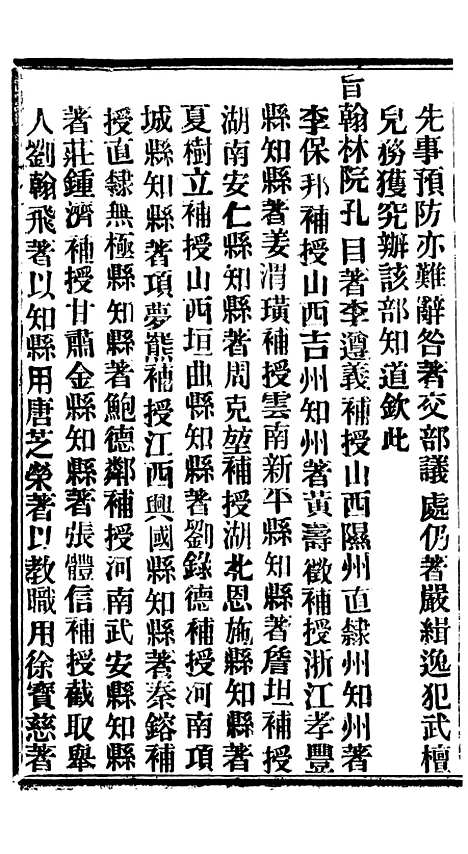 先事預防亦難辭咎著交部議處仍著嚴緝逸犯武檀
兒務獲究辦該部知道欽此
旨翰林院孔目著李遵義補授山西隰州直隸州知州著
李保邦補授山西吉州知州著黃壽徵補授浙江孝豐
縣知縣著姜渭璜補授雲南新平縣知縣著詹坦補授
湖南安仁縣知縣著周克堃補授湖北恩施縣知縣著
夏樹立補授山西垣曲縣知縣著劉錄德補授河南項
城縣知縣著項夢熊補授江西興國縣知縣著秦鎔補
授直隸無極縣知縣著鮑德鄰補授河南武安縣知縣
著莊鍾濟補授甘肅金縣知縣著張體信補授截取舉
人劉翰飛著以知縣用唐芝榮著以教職用徐寶慈著